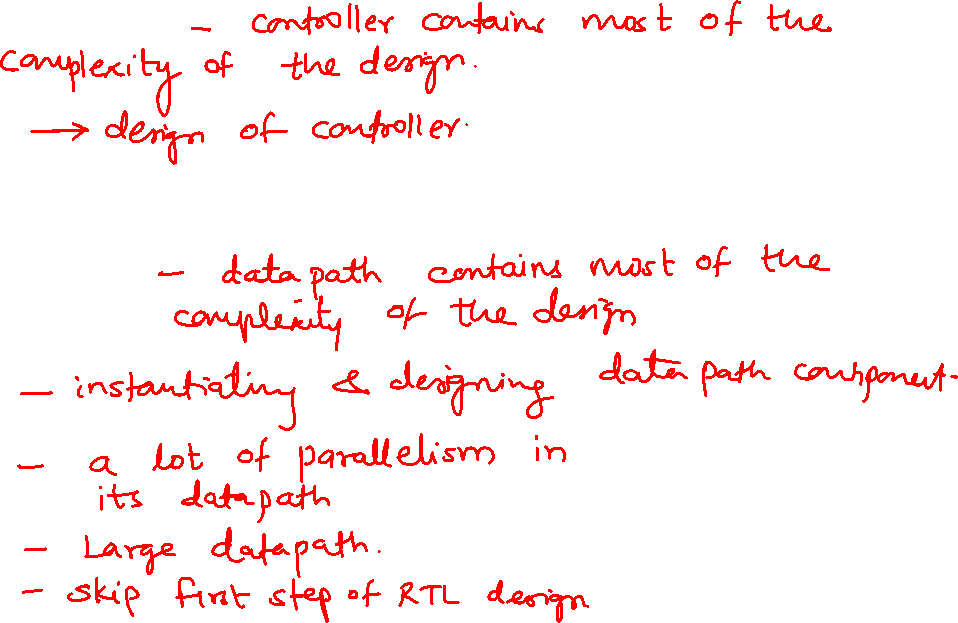 - controller contains most of the
complexity of the design.
→ design of controller.
- datapath contains most of the
complexity of the design
- instantiating & designing datapath component.
- a lot of parallelism in
its datapath
- Large datapath.
- skip first step of RTL design